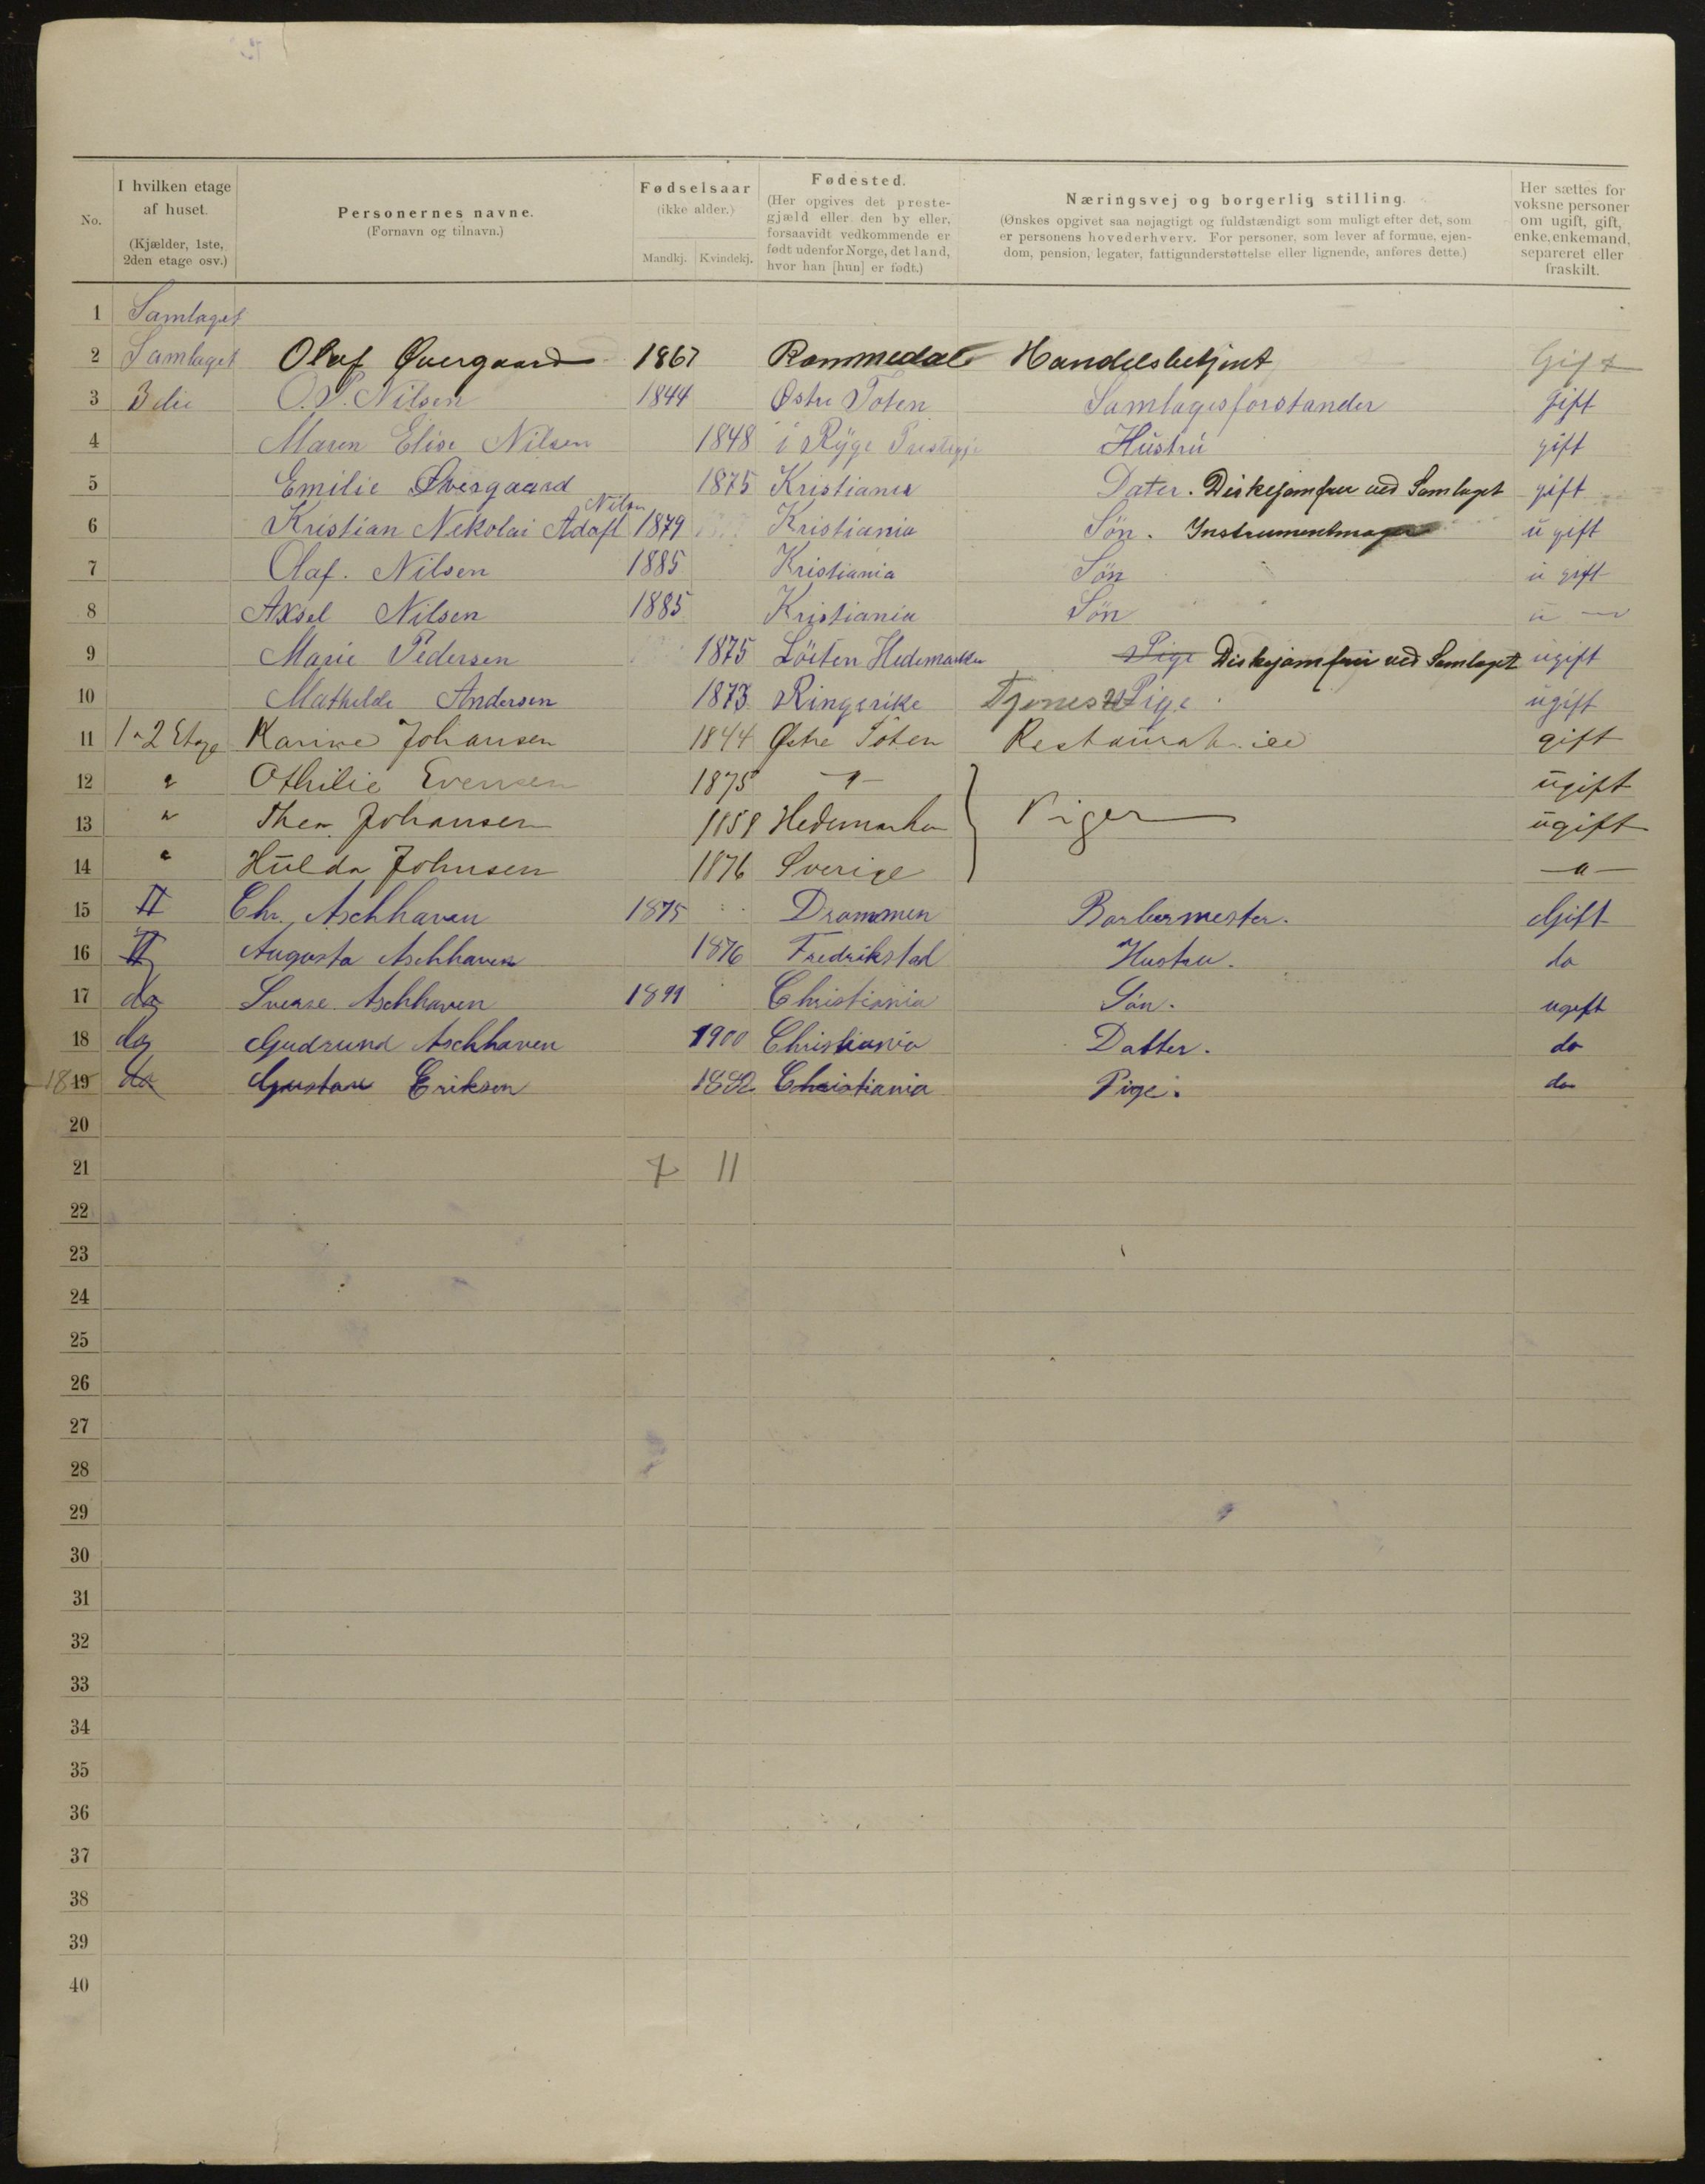 No.
I hvilken etage af huset. (Kjælder, 1ste, 2den etage osv.)
Personernes navne. (Fornavn og tilnavn.)
Fødselsaar (ikke alder.)
Mandkj. Kvindekj.
Fødested. (Her opgives det prestegjæld eller den by eller, forsaavidt vedkommende er født udenfor Norge, det land, hvor han [hun] er født.)
Næringsvej og borgerlig stilling. (Ønskes opgivet saa nøjagtigt og fuldstændigt som muligt efter det, som er personens hovederhverv. For personer, som lever af formue, ejendom, pension, legater, fattigunderstøttelse eller lignende, anføres dette.)
Her sættes for voksne personer om ugift, gift, enke, enkemand, separeret eller fraskilt.
1 Samlaget
2 Samlaget Olaf Øvergaard 1867 Rommedal Handelsbetjent Gift
3 3die O. P. Nilsen 1844 Østre Toten Samlagesforstander gift
4 Maren Elise Nilsen 1848 i Ryge Hustru gift
5 Emilie Øvergaard 1875 Kristiania Dater. Diskejomfru ved Samlaget gift
6 Kristian Nekolai Adolf Nilsen 1879 Kristiania Søn. Instrumentmager ugift
7 Olaf. Nilsen 1885 Kristiania Søn ugift
8 Axsel Nilsen 1885 Kristiania Søn
9 Marie Pedersen 1875 Löiten Hedemarken Pige Diskejomfru ved Samlaget ugift
10 Mathilde Andersen 1873 Ringerike Tjeneste Pige ugift
11 1-2 Etage Karine Johansen 1844 Østre Toten gift
12 " Othilie Evensen 1875 -"- ugift
13 " Thea Johansen Hedemarken Piger ugift
14 " Hulda Johnsen 1876 Sverige -"-
15 II Chr. Aschhaven 1875 Drammen Barbermester. Gift
16 II Augusta Aschhaven 1876 Fredrikstad Hustru. do
17 do Sverre Aschhaven 1899 Christiania Sön. ugift
18 do Gudrund Aschhaven 1900 Christiania Datter. do
18 19 do Gustava Eriksen 1882 Christiania Pige. do
20
21 7 11
22
23
24
25
26
27
28
29
30
31
32
33
34
35
36
37
38
39
40